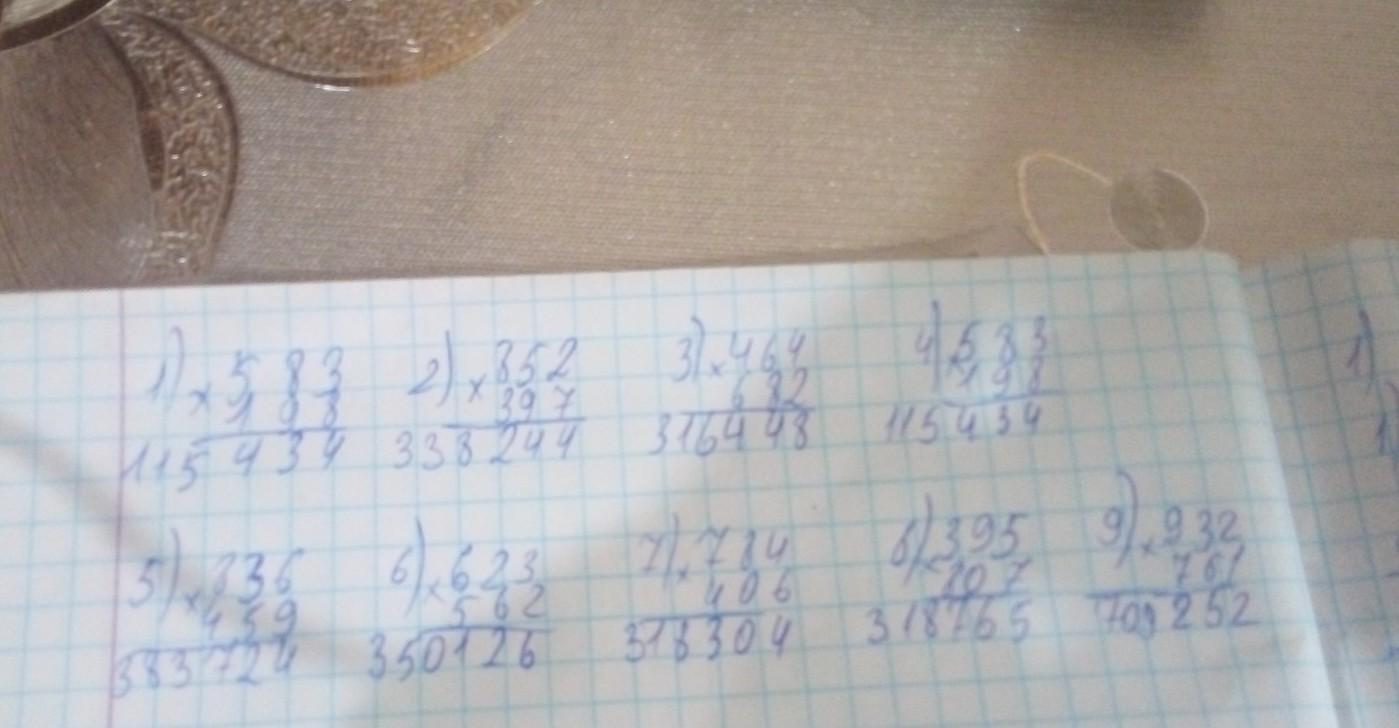 1) × 583 2) × 852 3) × 464 4) × 583
198 397 682 198
115434 338244 316448 115434
5) × 836 6) × 623 7) × 784 8) × 395 9) × 932
459 562 406 807 761
383724 350126 318304 318765 709252
1)